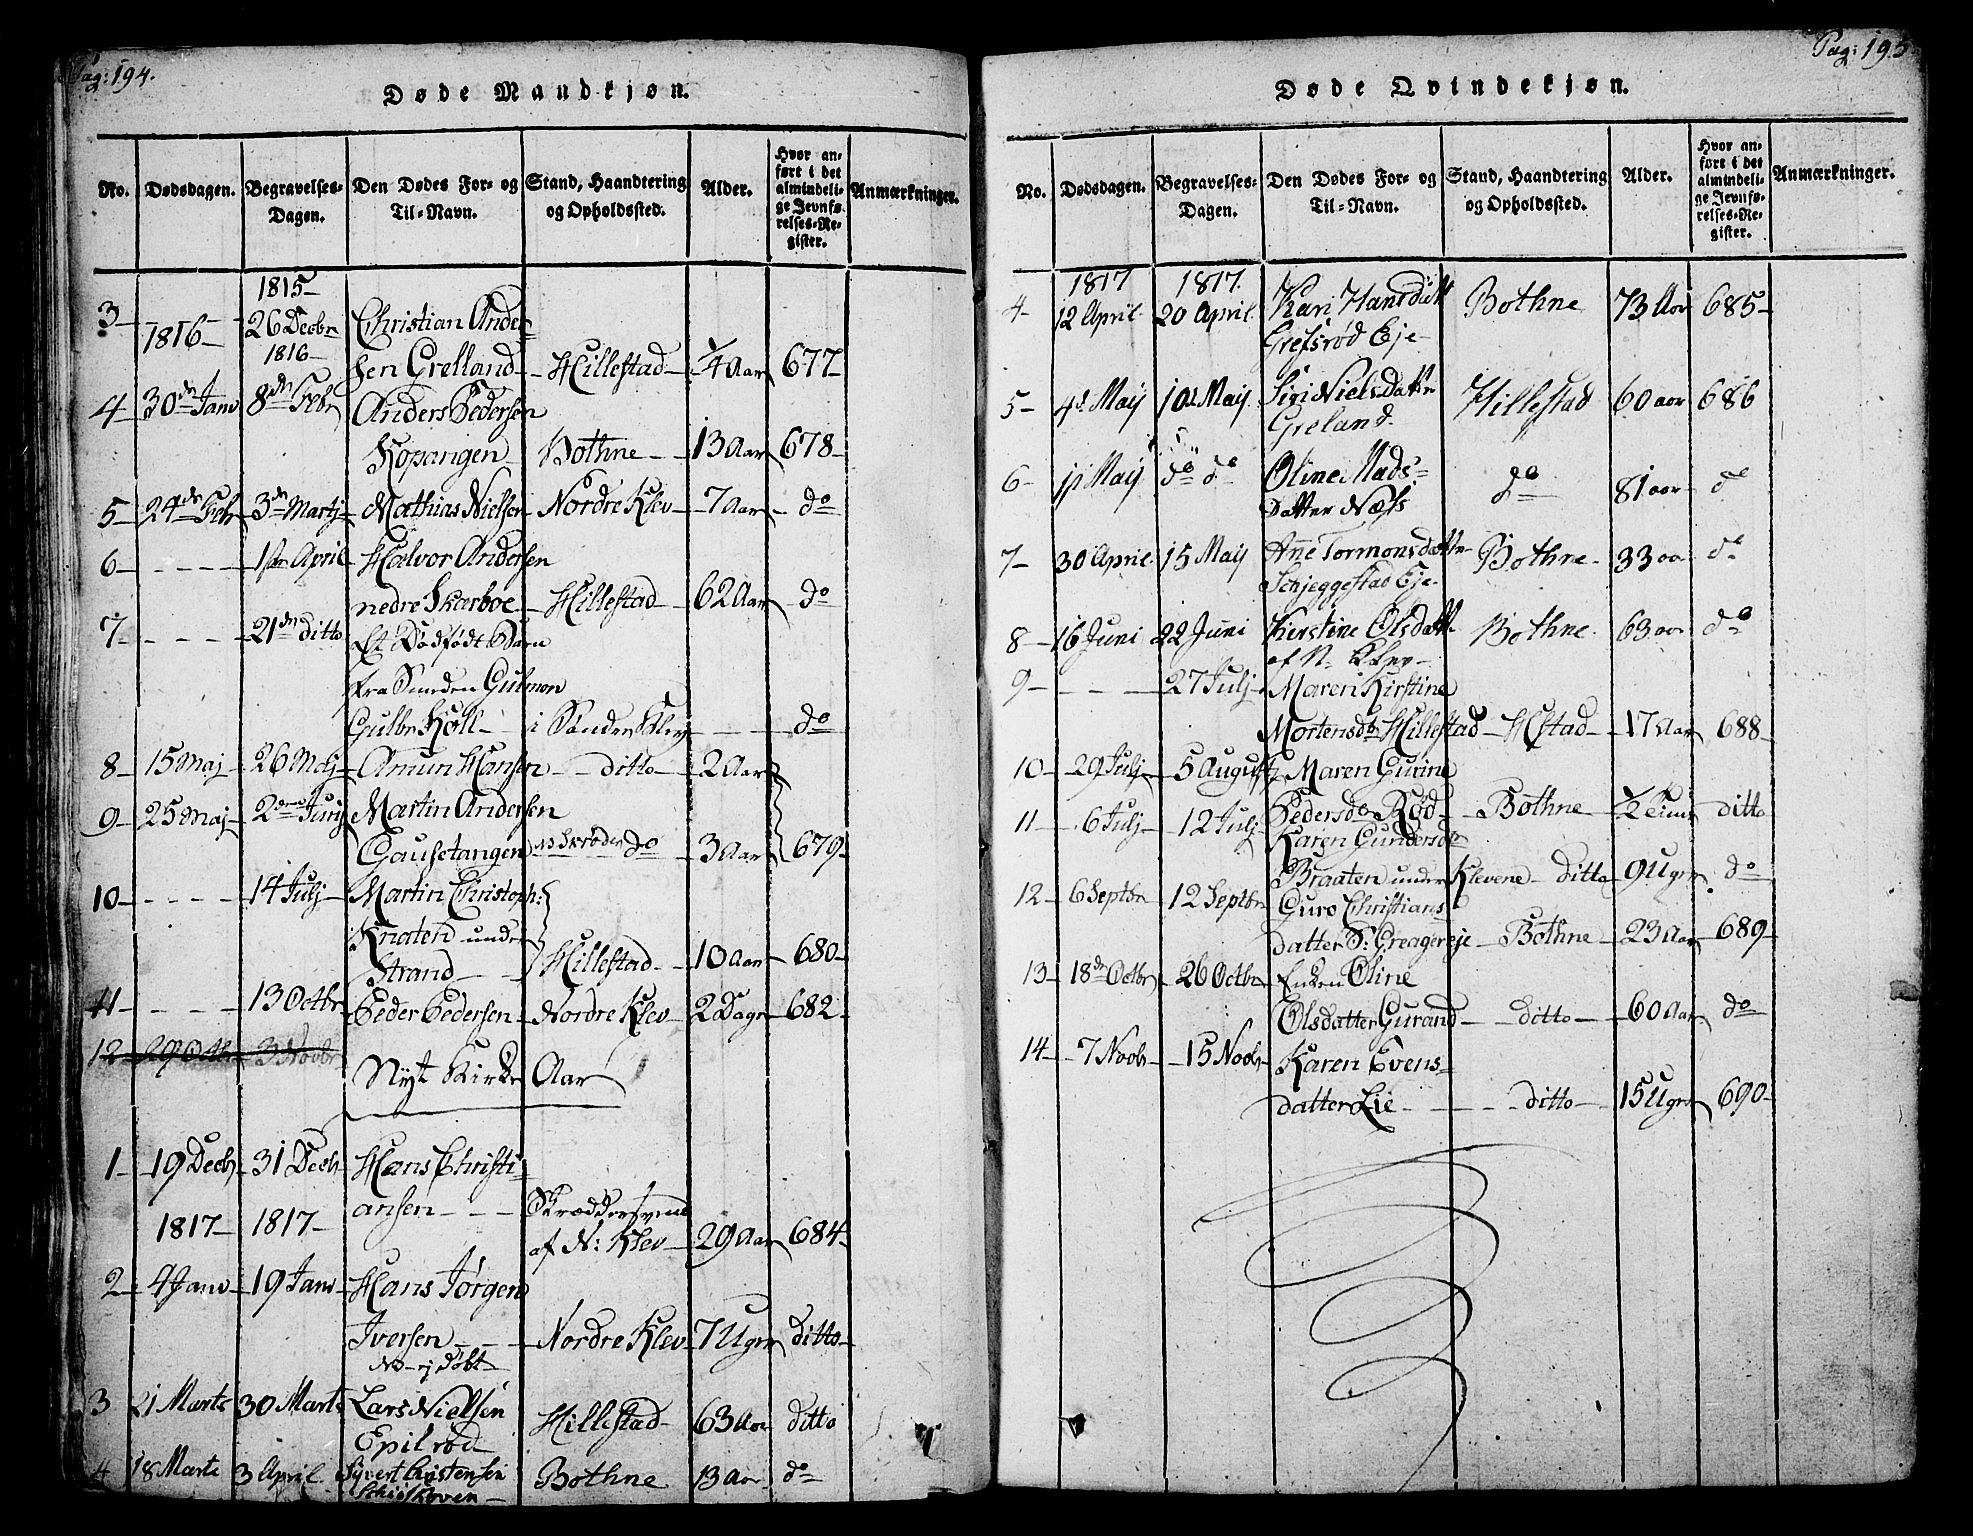 Pag: 194.
Døde Mandkjøn.
No. Dødsdagen. Begravelses-Dagen. Den Dødes For- og Til-Navn. Stand, Haandtering og Opholdssted. Alder. Hvor anført i det almindelige Jevnførelses-Register. Anmærkninger.
1815
3 26 Decbr Christian Ander-
1816 1816
sen Grelland Hillestad 1/4 Aar 677
4 30de Janv 8de Febr Anders Pedersen
Kopangen Bothne 13 Aar 678
5 24de Febr 3de Martj Mathias Nielsen Nordre Klev 7 Aar do
6 1ste April Halvor Andersen
nedre Skarboe Hillestad 62 Aar do
7 21de ditto Et Dødfødt Barn
fra Sunden
Gulbr Koll i Sønder Klev do
8 15 Maj 26 Maj Amun Hansen ditto 2 Aar
9 25 Maj 2den Junj Martin Andersen
Gausetangen do 3 Aar 679
10 14 Julj Martin Christoph:
Knaten under
Strand Hillestad 10 Aar 680
11 13 Octbr Peder Pedersen Nordre Klev 2 Dage 682
12 29 Octbr 3 Novbr
Nyt Kirke Aar
1 19 Decbr 31 Decbr Hans Christi-
ansen Skræddersvend
1817 1817 af N: Klev 29 Aar 684
2 4 Janv 19 Janv Hans Jørgen
Iversen Nordre Klev 7 Ugr ditto
NB ej døbt
3 21 Marts 30 Marts Lars Nielsen
Epilrød Hillestad 63 Aar ditto
4 18 Marts 3 April Syvert Cristensen Bothne 13 Aar do
Schiølkoven
Pag: 195
Døde Qvindekjøn.
No. Dødsdagen. Begravelses-Dagen. Den Dødes For- og Til-Navn. Stand, Haandtering og Opholdssted. Alder. Hvor anført i det almindelige Jevnførelses-Register. Anmærkninger.
1817 1817.
4 12 April 20 April Kari Hansdatt Bothne 73 Aar 685
Grefsrød Eje
5 4d Maij 10d Maij Siri Nielsdattr Hillestad 60 aar 686
Greland
6 11 Maij do do Oline Mads- do 81 aar do
datter Næss
7 30 April 15 Maij Anne Tormonsdattr Bothne 33 aar do
Schjeggestad Eje
8 16 Juni 22 Juni Kierstine Olsdattr Bothne 63 aar do
af N. Klev
9 27 Julj Maren Kirstine
Mortensdr Hillestad Hstad 17 Aar 688
10 29 Julj 5 August Maren Gurine
Pedersdr Rød Bothne 1/2 Time ditto
11 6 Julj 12 Julj Karen Gundersdr
Braaten under Klevene ditto 9 Ugr do
12 6 Septbr 12 Septbr Guro Christians
datter S: Greagereje Bothne 23 Aar 689
13 18de Octbr 26 Octbr Enken Oline
Olsdatter Gurand ditto 60 Aar do
14 7 Novbr 15 Novbr Karen Evens-
datter Lie ditto 15 Ugr 690